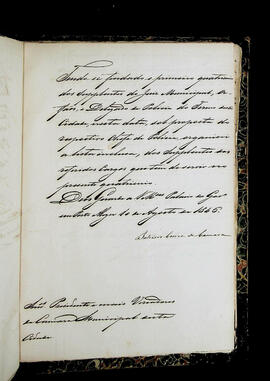 Tendo se findado o primeiro quatrien
dos Supplentes de Juiz Municipal, e de
Delegado de Policia do Termo desta
Cidade, nesta data, sob proposta do
respectivo Chefe de Policia, organisei
a lista inclusa, dos Supplentes dos
referidos Cargos que tem de servir no
presente quatriennio.
Deos Guarde a V. Mces Palacio do Gov
em Porto Alegre 10 de Agosto de 1865.
Snrs. Presidente e mais Vereadores
da Camara Municipal desta
Cidade